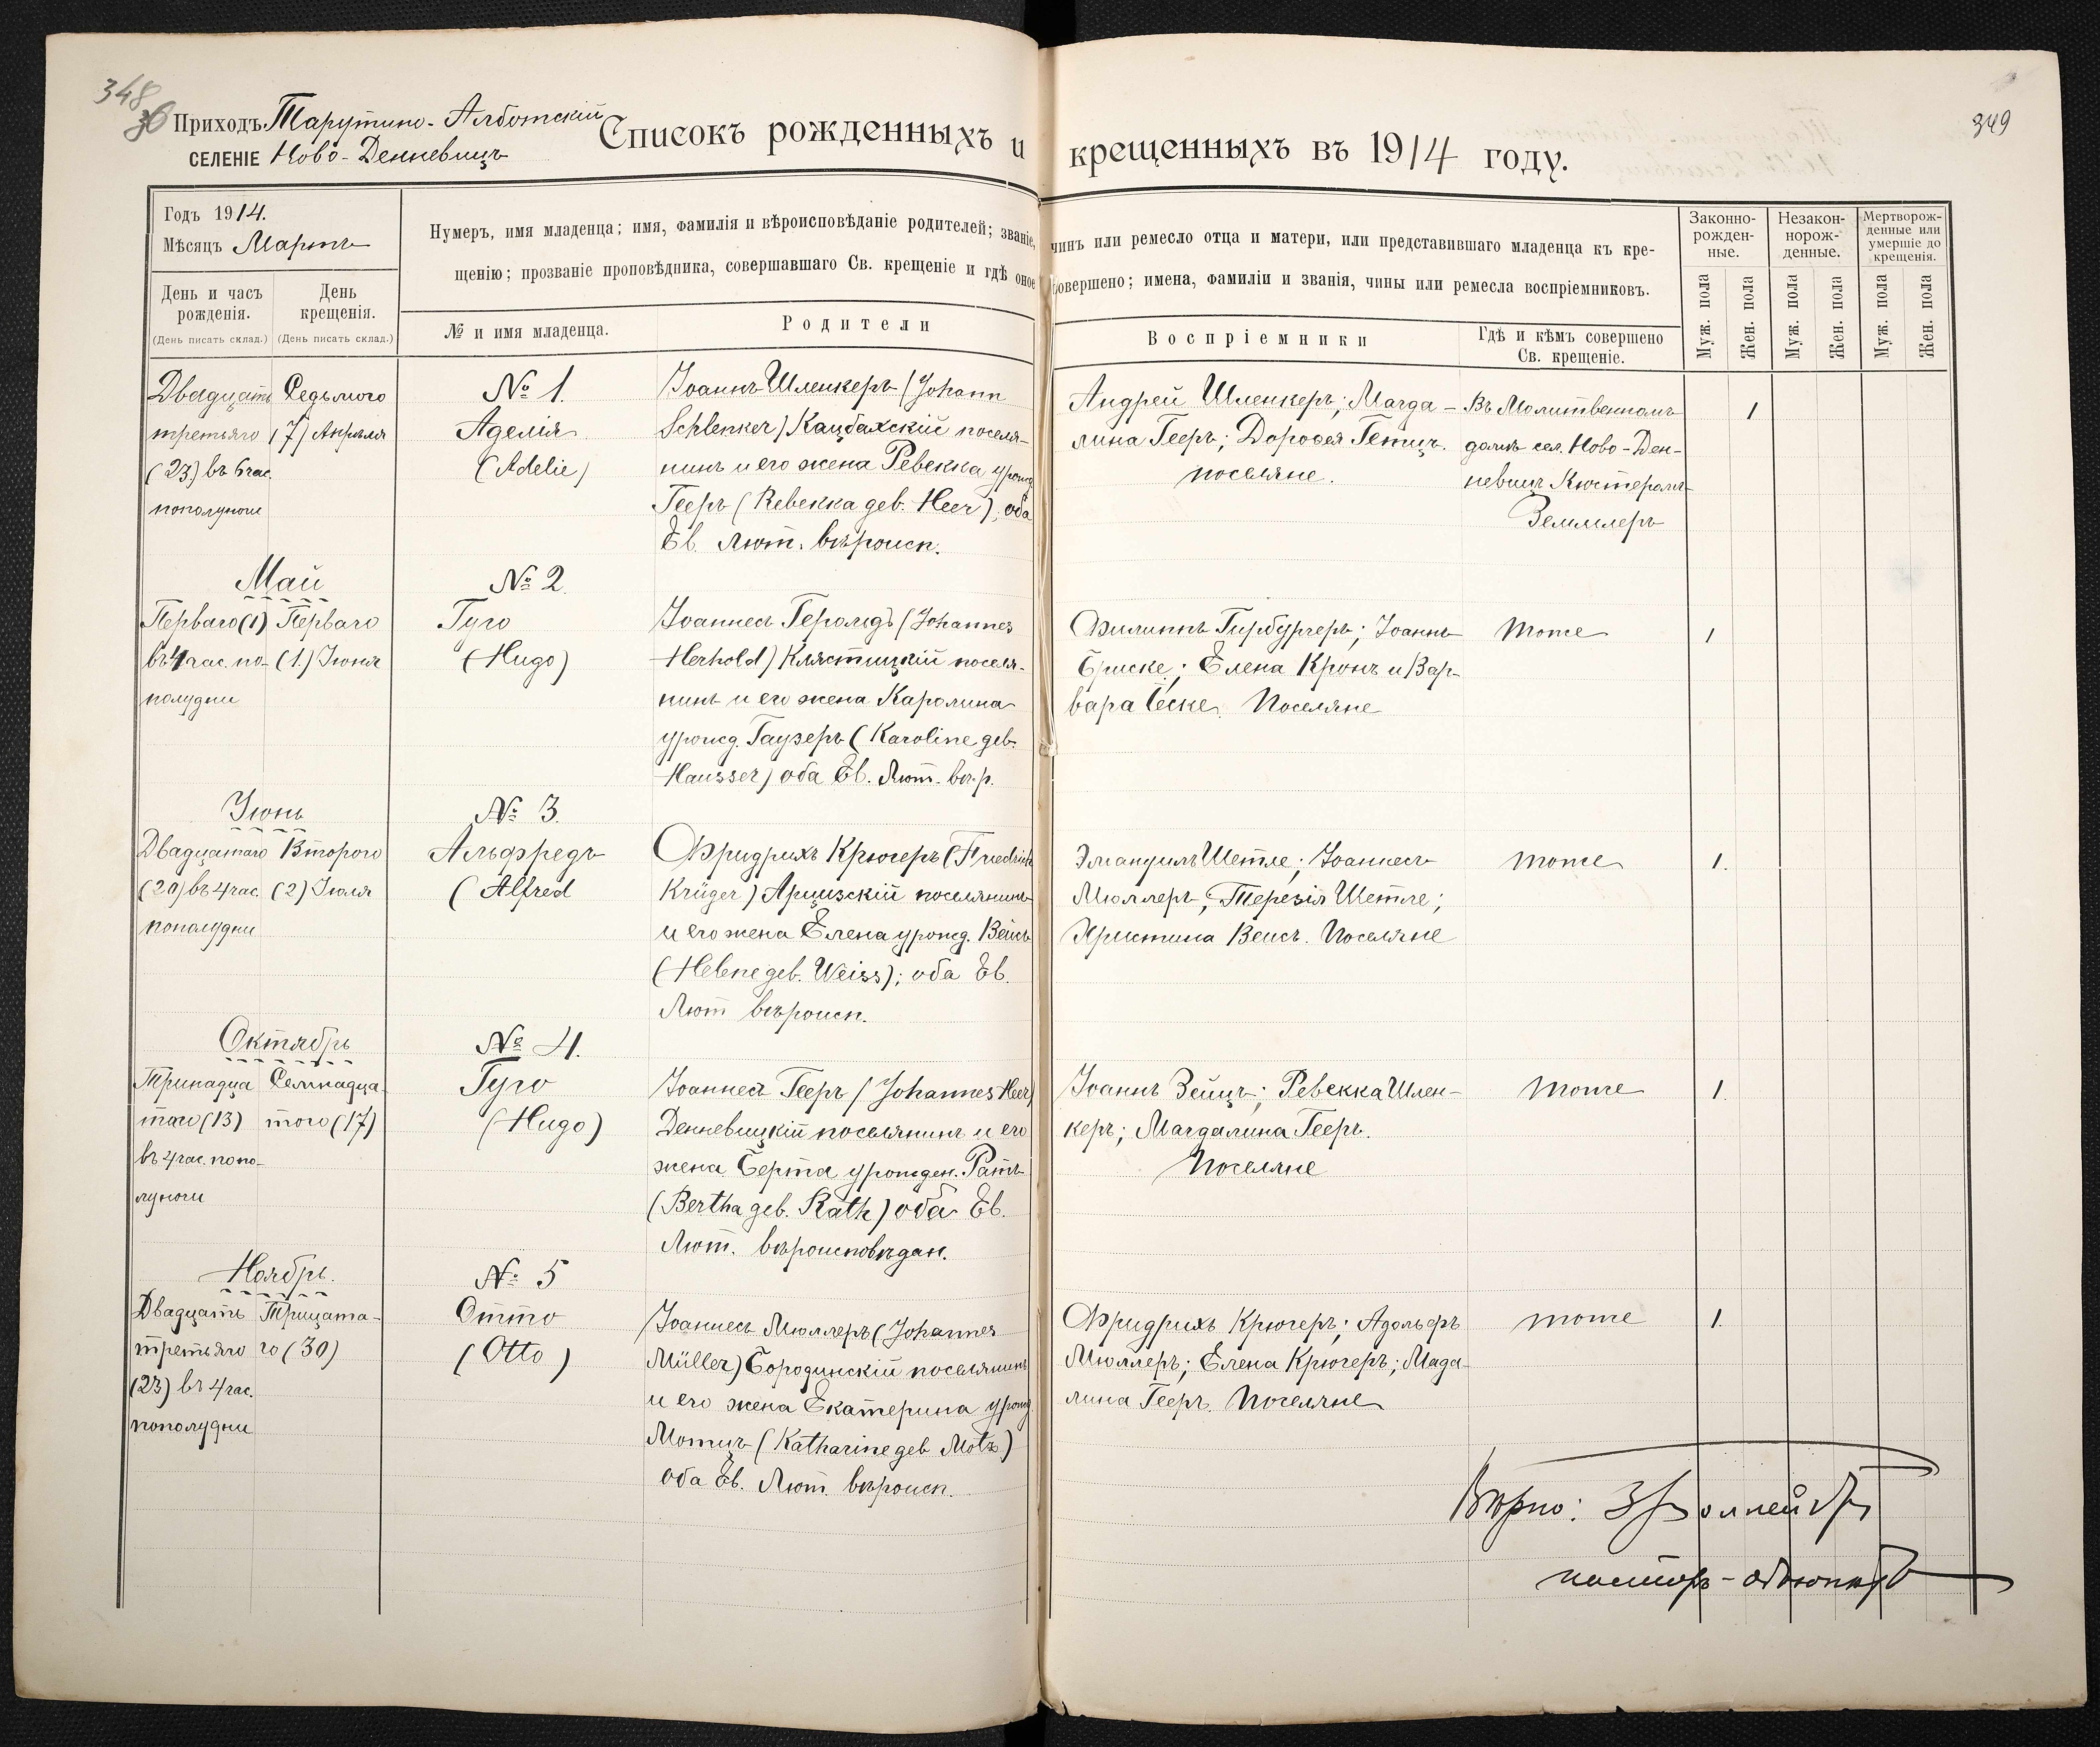 348
36
349
Приходъ Тарутино-Алботскій
СЕЛЕНІЕ Ново-Денневицъ
Списокъ рожденныхъ и крещенныхъ въ 1914 году.
Годъ 1914.
Мѣсяцъ Мартъ
День и часъ рожденія.
(День писать склад.)
День крещенія.
(День писать склад.)
Нумеръ, имя младенца; имя, фамилія и вѣроисповѣданіе родителей; званіе, чинъ или ремесло отца и матери, или представившаго младенца къ кре-
щенію; прозваніе проповѣдника, совершавшаго Св. крещеніе и гдѣ оное совершено; имена, фамиліи и званія, чины или ремесла воспріемниковъ.
№ и имя младенца.
Родители
Воспріемники
Гдѣ и кѣмъ совершено
Св. крещеніе.
Законно-
рожден-
ные.
Незакон-
норож-
денные.
Мертворож-
денные или
умершіе до
крещенія.
Муж. пола
Жен. пола
Муж. пола
Жен. пола
Муж. пола
Жен. пола
Двадцать
третьяго
(23) въ 6 час.
пополуночи
Седьмого
(7) Апрѣля
№ 1.
Аделія
(Adelie)
Іоаннъ Шленкеръ (Johann
Schlenker) Кацбахскій поселя-
нинъ и его жена Ревекка урожд.
Гееръ (Rebekka geb. Heer), оба
Ев. Лют. вѣроисп.
Андрей Шленкеръ; Магда-
лина Гееръ; Доровея Гетцъ.
поселяне.
Въ Молитвенномъ
домѣ сел. Ново-Ден-
невицъ Кюстеромъ
Земмлеръ
1
Май
Перваго (1)
въ 4 час. по-
полудни
Перваго
(1.) Іюня
№ 2.
Гуго
(Hugo)
Іоаннесъ Герольдъ (Johannes
Herhold) Клястицкій поселя-
нинъ и его жена Каролина
урожд. Гаузеръ (Karoline geb.
Hausser) оба Ев. Лют. вѣр.
Филиппъ Гирбургеръ; Іоаннъ
Бриске; Елена Кронъ и Вар-
вара Ческе. Поселяне
тоже
1
Іюнь
Двадцатаго
(20) въ 4 час.
пополудни
Второго
(2) Іюля
№ 3.
Альфредъ
(Alfred
Фридрихъ Крюгеръ (Friedrich
Krüger) Арцизскій поселянинъ
и его жена Елена урожд. Вейсъ
(Helene geb. Weiss); оба Ев.
Лют вѣроисп.
Эмануилъ Шетле; Іоаннесъ
Мюллеръ; Терезія Шетле;
Христина Веисъ. Поселяне
тоже
1.
Октябрь
Тринадца
таго (13)
въ 4 час. попо-
луночи
Семнадца-
того (17)
№ 4.
Гуго
(Hugo)
Іоаннесъ Гееръ (Johannes Heer)
Денневицкій поселянинъ и его
жена Берта урожден. Ратъ
(Bertha geb. Rath) оба Ев.
Лют. вѣроисповѣдан.
Іоаннъ Зейцъ; Ревекка Шлен-
керъ; Магдалина Гееръ.
Поселяне
тоже
1.
Ноябрь.
Двадцать
третьяго
(23) въ 4 час.
пополудни
Трицата-
го (30)
№ 5
Отто
(Otto)
Іоаннесъ Мюллеръ (Johannes
Müller) Бородинскій поселянинъ
и его жена Екатерина урожд.
Мотцъ (Katharine geb Motz)
оба Ев. Лют. вѣроисп.
Фридрихъ Крюгеръ; Адольфъ
Мюллеръ; Елена Крюгеръ; Магда-
лина Гееръ. Поселяне
тоже
1.
Вѣрно:
пасторъ-адъюнктъ